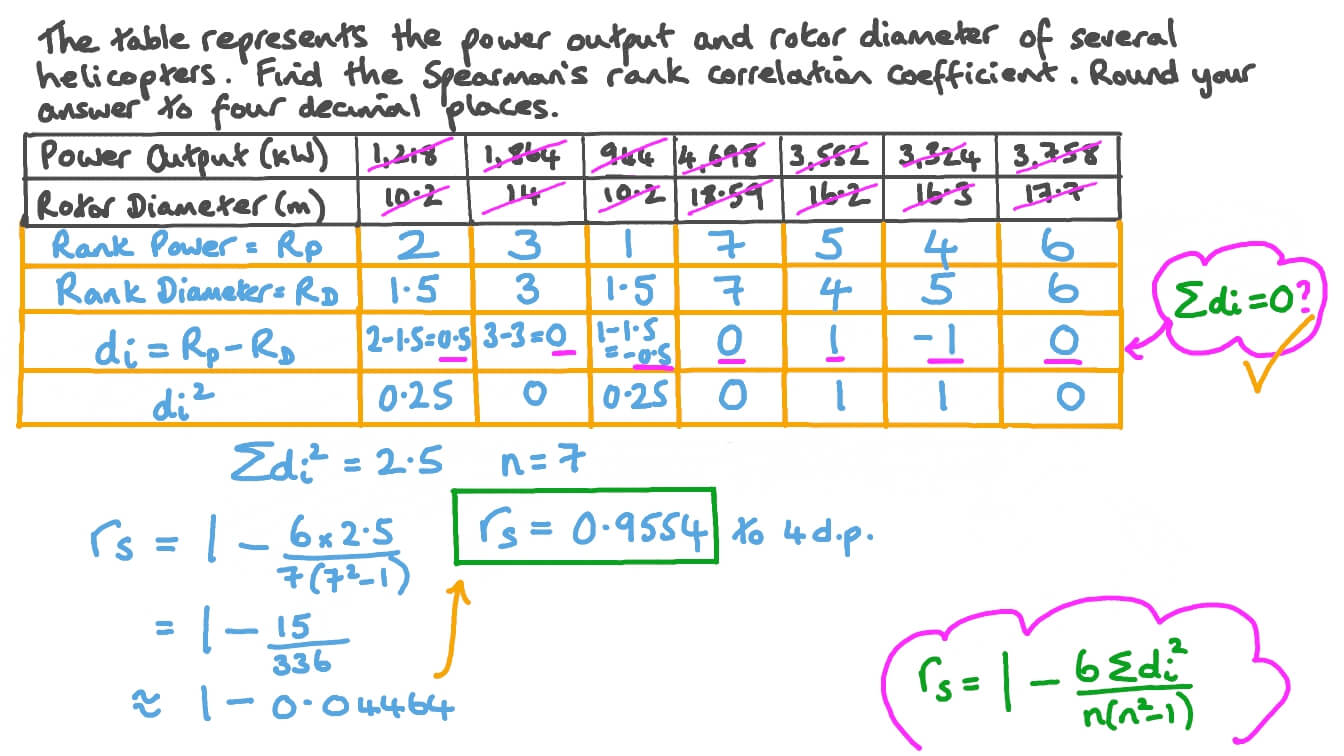 The table represents the power output and rotor diameter of several
helicopters. Find the Spearman's rank correlation coefficient. Round your
answer to four decimal places.
Power Output (kW) 1,218 1,864 944 4,698 3,552 3,324 3,758
Rotor Diameter (m) 10.2 14 10.2 18.59 16.2 16.3 17.7
Rank Power = Rp 2 3 1 7 5 4 6
Rank Diameter = RD 1.5 3 1.5 7 4 5 6
di = Rp - RD 2-1.5=0.5 3-3=0 1-1.5 = -0.5 0 1 -1 0
Σdi = 0?
di² 0.25 0 0.25 0 1 1 0
Σdi² = 2.5 n = 7
rs = 1 - 6×2.5 / 7(7²-1)
rs = 0.9554 to 4 d.p.
= 1 - 15 / 336
≈ 1 - 0.04464
rs = 1 - 6Σdi² / n(n²-1)